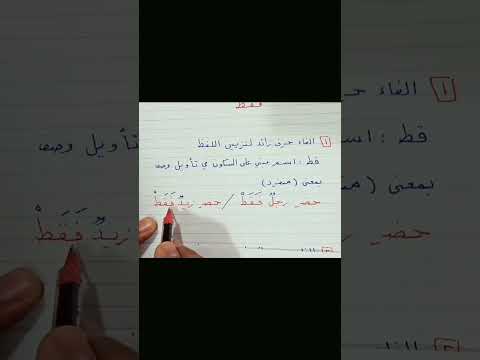 فقط
١ الفاء حرف زائد لتزيين اللفظ
قط : اسم مبني على السكون في تأويل وصف
بمعنى (منفرد)
حضر رجلٌ فَقَطْ / حضر زيدٌ فَقَطْ